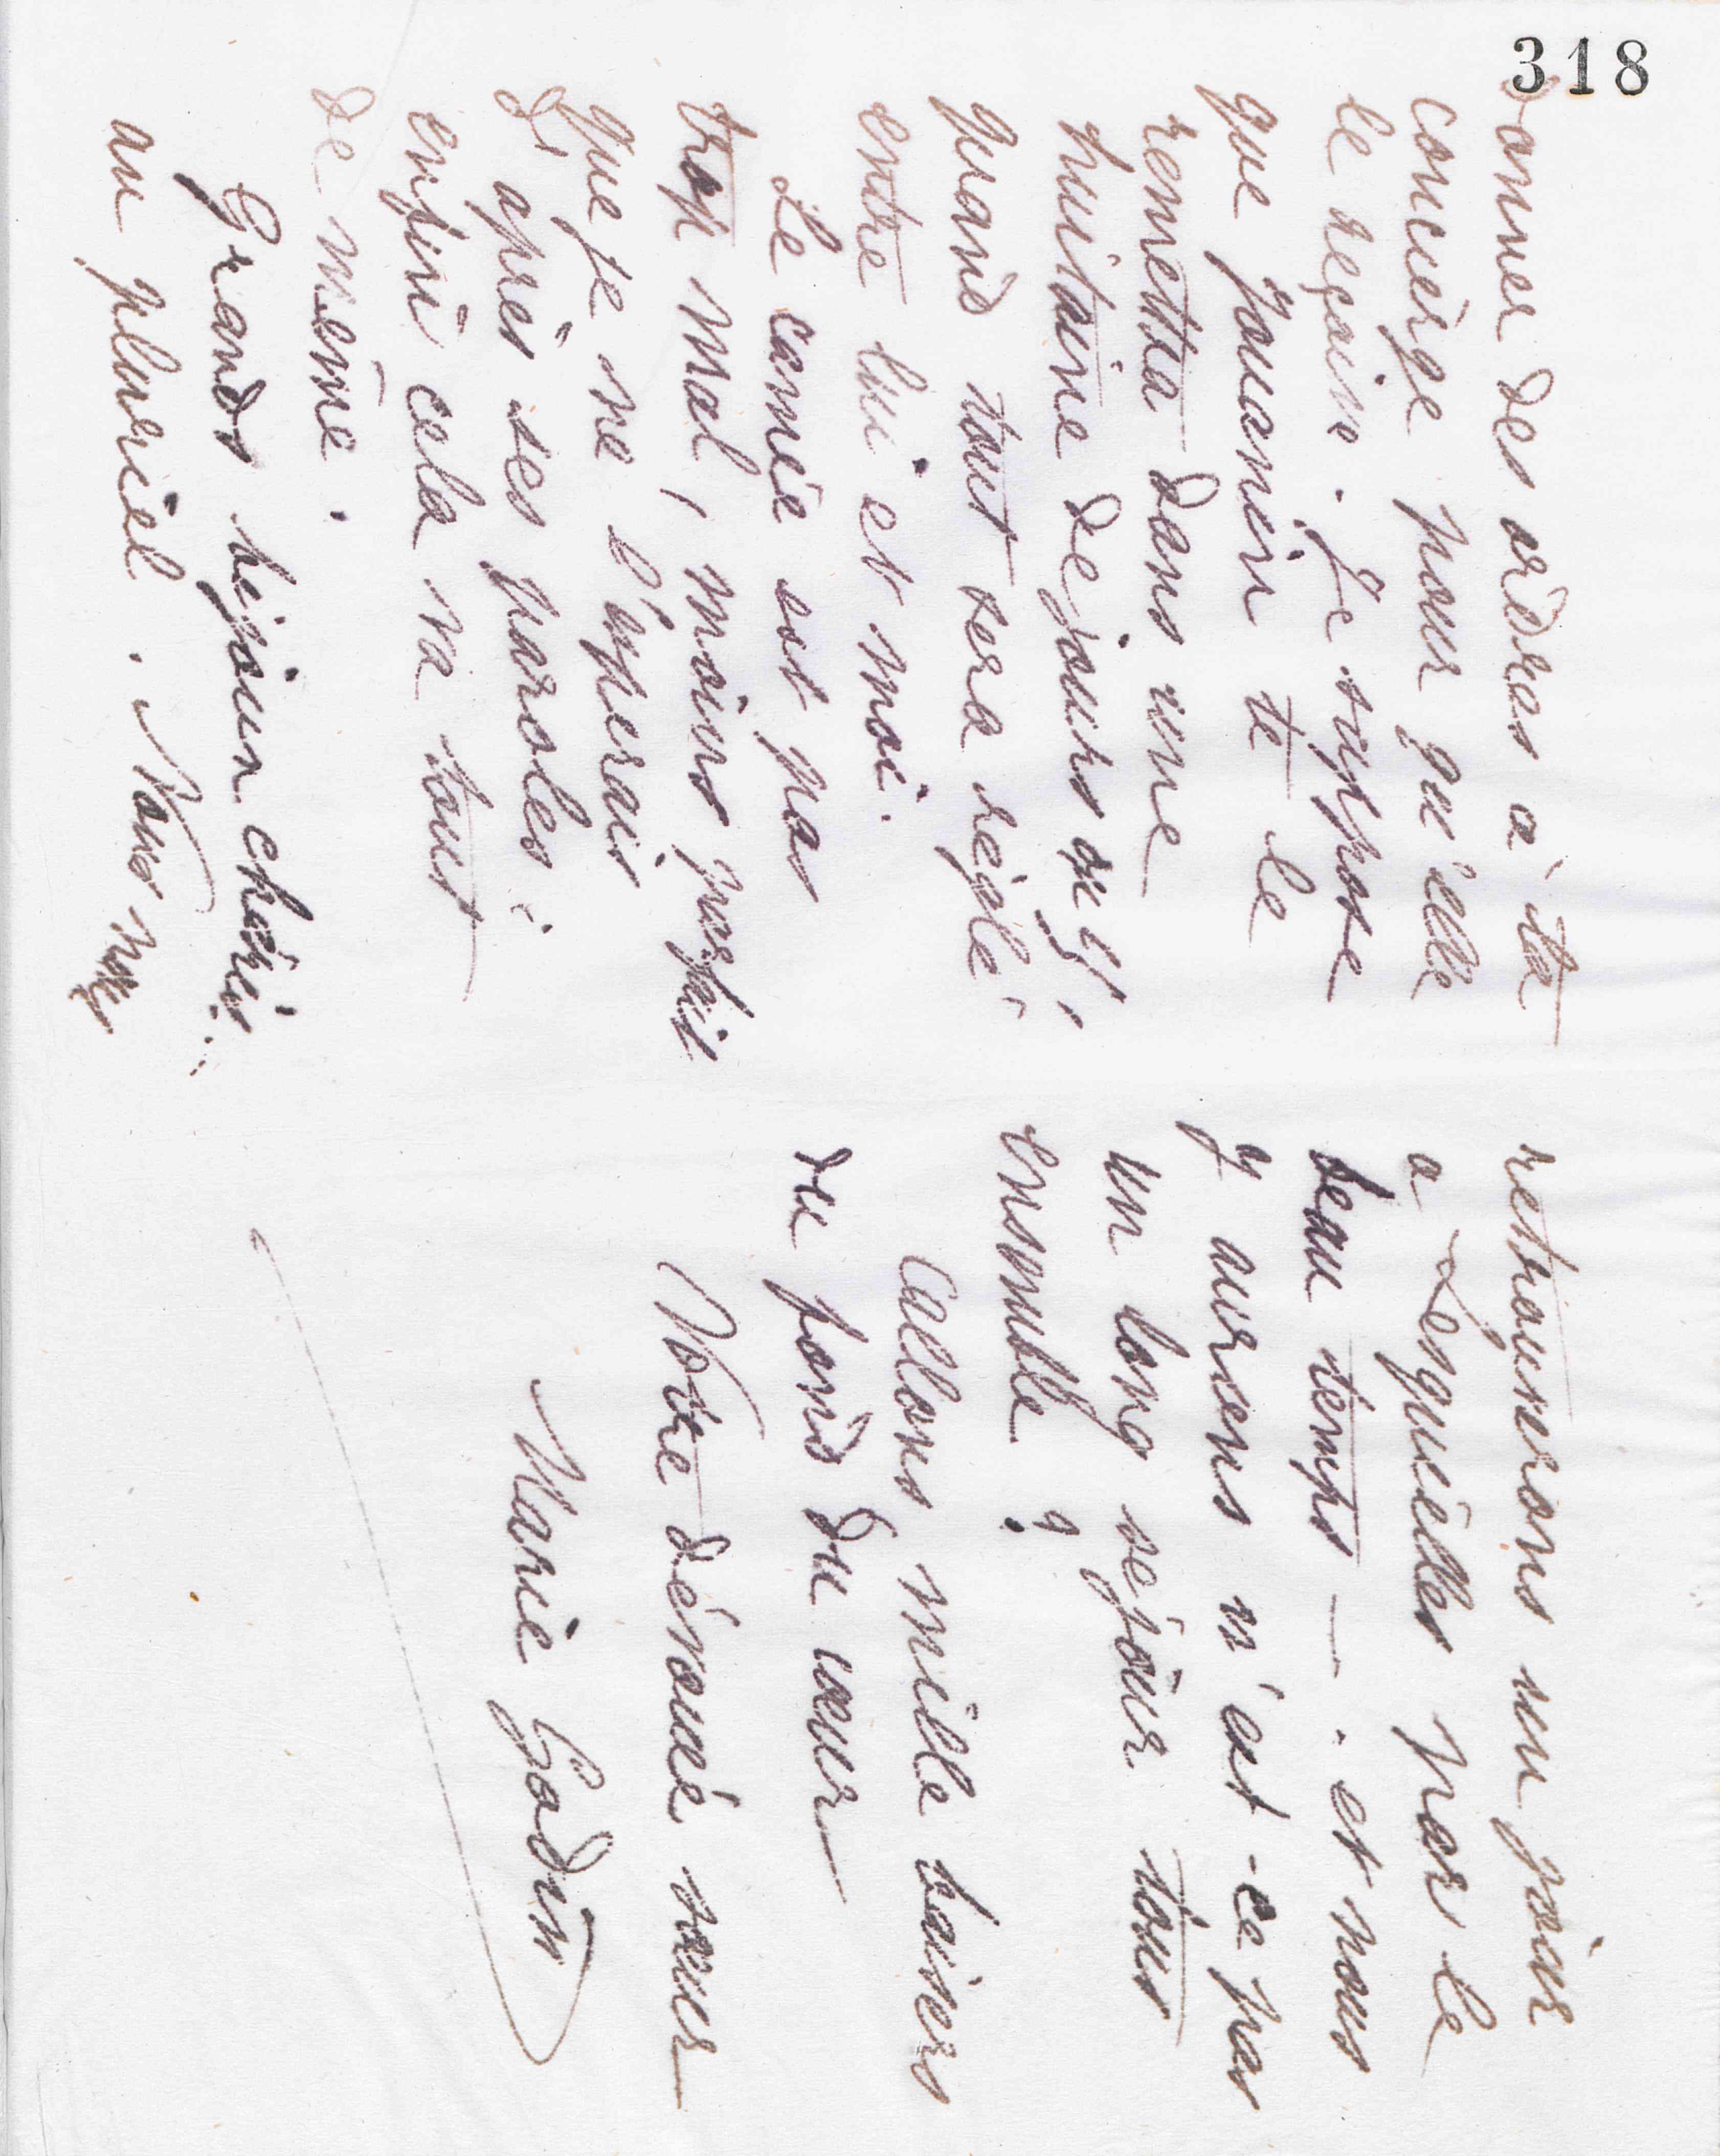 318
donner des ordres à ta
concierge pour qu'elle
le reçoive. Je suppose
que Jouanin te le
remettra dans une
huitaine de jours ou 4,
quand tout sera réglé
entre lui et moi.
Le camée est pas
trop mal, moins parfait
que je ne l'espérais
d'après ses paroles;
enfin cela va tout
de même.
Grands bijoux chéris..
au pluriel. Nous nous
retrouverons un jour
a Lesquielles par le
beau temps —. et nous
y aurons n'est-ce pas
un long séjour tous
ensemble ?
Allons mille baisers
du fond du cœur
Votre dévouée sœur
Marie Godin